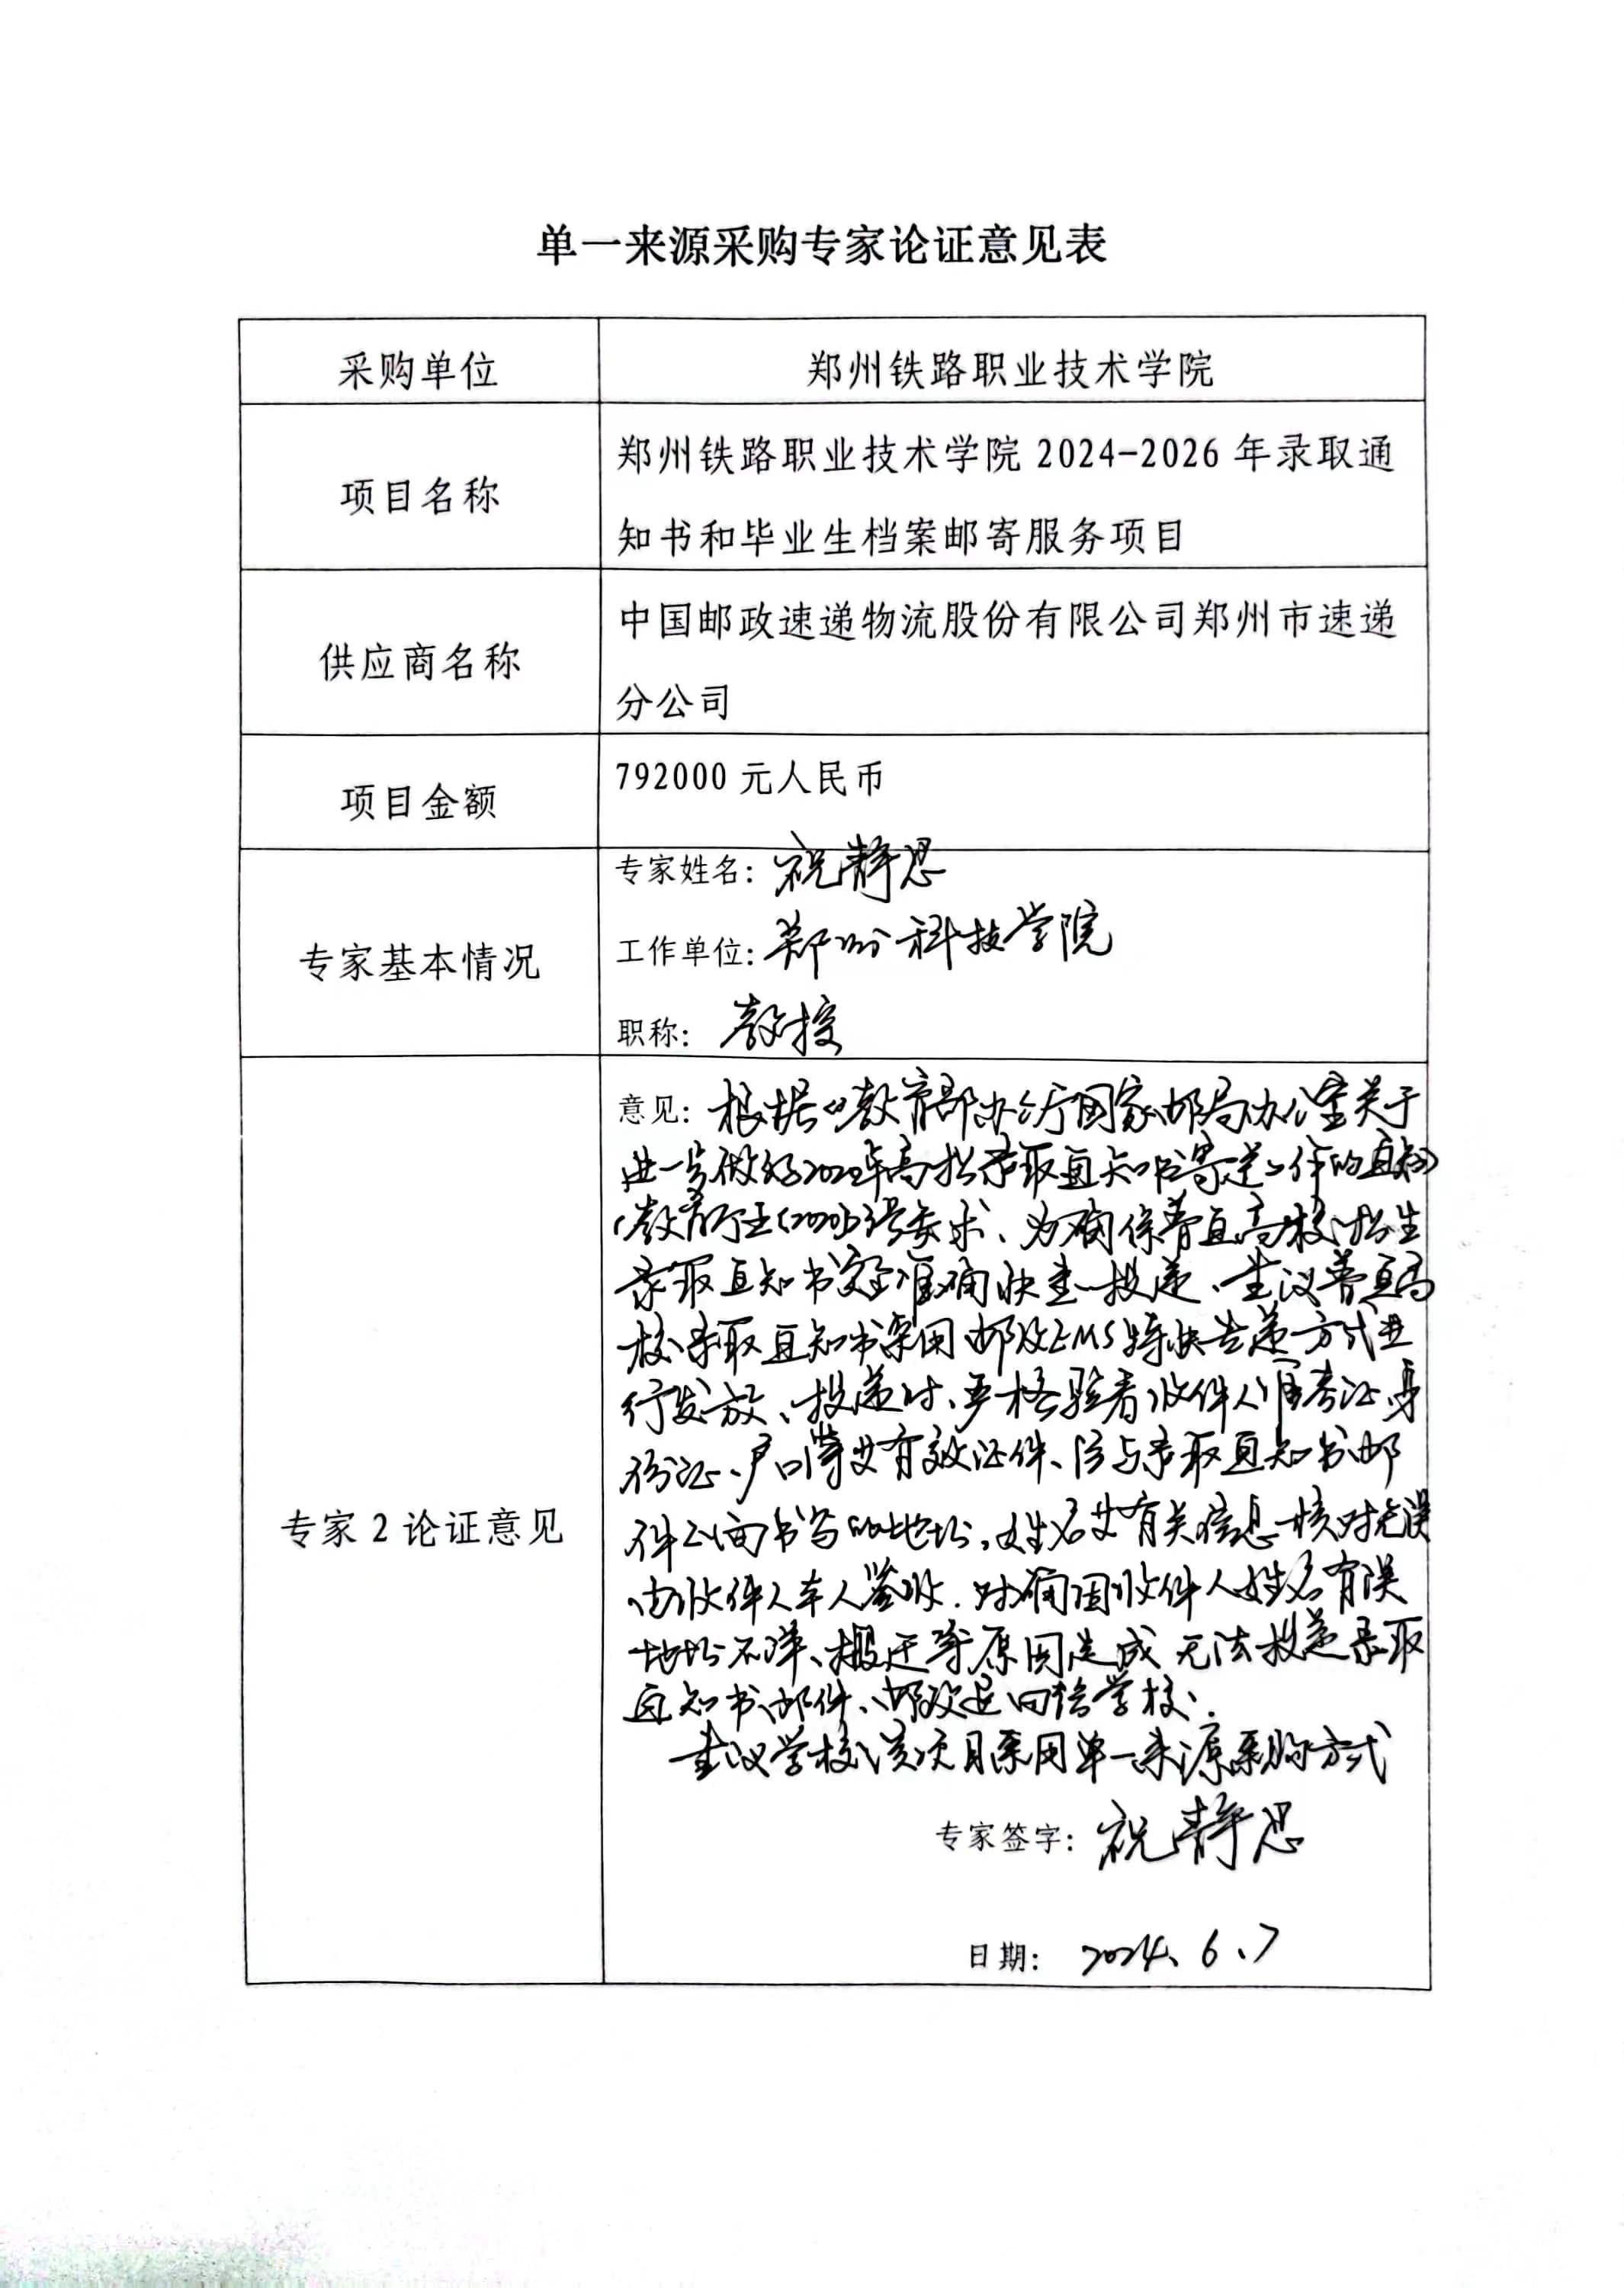 单一来源采购专家论证意见表
采购单位
郑州铁路职业技术学院
项目名称
郑州铁路职业技术学院 2024-2026 年录取通
知书和毕业生档案邮寄服务项目
供应商名称
中国邮政速递物流股份有限公司郑州市速递
分公司
项目金额
792000 元人民币
专家基本情况
专家姓名: 祝静思
工作单位: 郑州科技学院
职称: 教授
专家 2 论证意见
意见: 根据《教育部办公厅国家邮局办公室关于
进一步做好2020年高校录取通知书寄递工作的通知》
要求、为确保普通高校招生
录取通知书安全准确快速投递、建议普通高
校录取通知书采用邮政EMS特快专递方式进
行发放、投递时、严格验看收件人准考证身
份证、户口簿等有效证件、应与录取通知书邮
件正面书写的地址,姓名等有关信息核对无误
由收件人本人签收.对确因收件人姓名有误
地址不详、搬迁等原因造成无法投递录取
通知书邮件、邮政退回给学校.
建议学校该项目采用单一来源采购方式
专家签字: 祝静思
日期: 2024、6、7